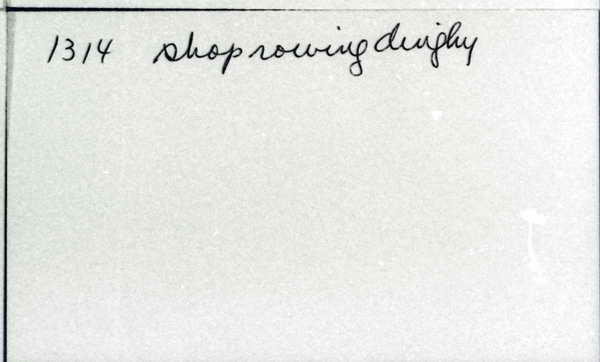 1314 shop rowing dinghy